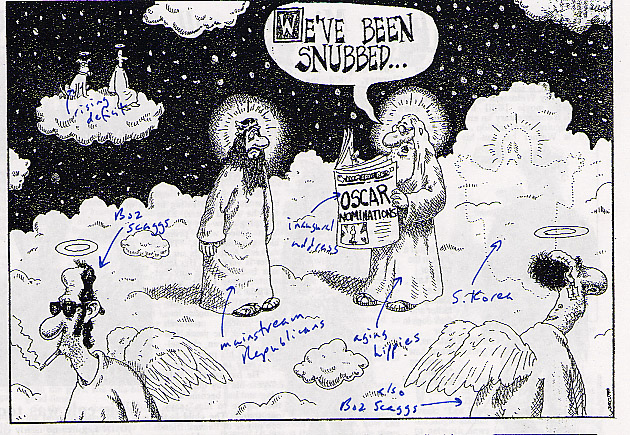 WE'VE BEEN
SNUBBED...
rising
deficit
OSCAR
NOMINATIONS
Boz
Scaggs
inaugural
S. Korea
mainstream
Republicans
aging
hippies
also
Boz Scaggs